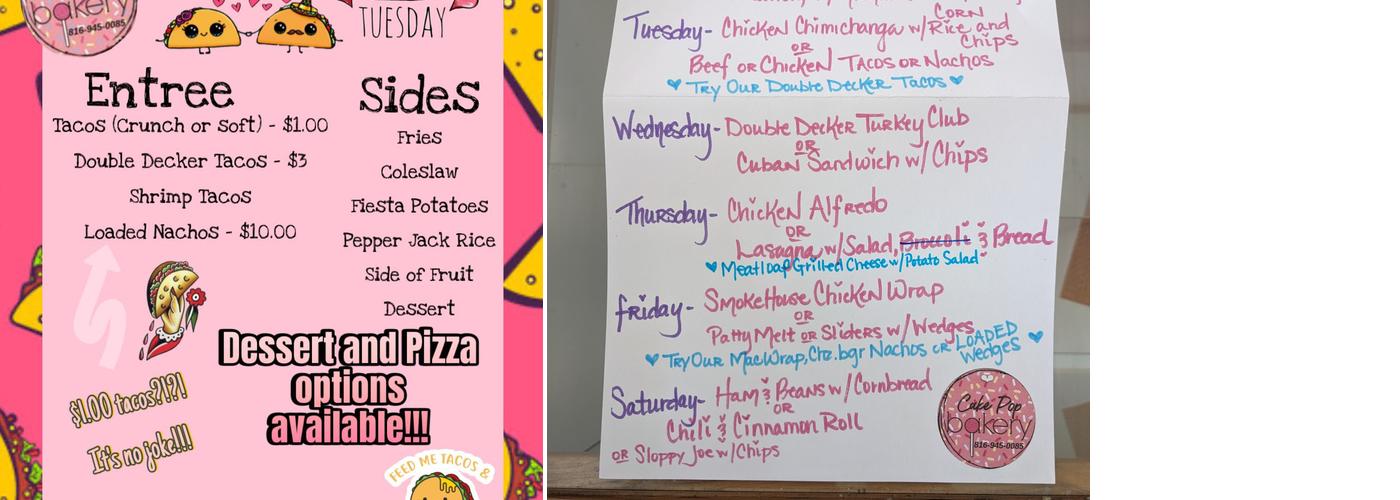 bakery
816-945-0085
TUESDAY
Entree
Tacos (Crunch or soft) - $1.00
Double Decker Tacos - $3
Shrimp Tacos
Loaded Nachos - $10.00
Sides
Fries
Coleslaw
Fiesta Potatoes
Pepper Jack Rice
Side of Fruit
Dessert
Dessert and Pizza
options
available!!!
$1.00 tacos?!?!
It's no joke!!!
FEED ME TACOS &
Tuesday- Chicken Chimichanga w/ Corn Rice and Chips
OR
Beef or Chicken Tacos or Nachos
Try Our Double Decker Tacos
Wednesday- Double Decker Turkey Club
OR
Cuban Sandwich w/ Chips
Thursday- Chicken Alfredo
OR
Lasagna w/ Salad, Broccoli & Bread
Meatloaf Grilled Cheese w/ Potato Salad
Friday- SmokeHouse Chicken Wrap
OR
Patty Melt or Sliders w/ Wedges
Try Our Mac Wrap, Chz. bgr Nachos or LOADED Wedges
Saturday- Ham & Beans w/ Cornbread
OR
Chili & Cinnamon Roll
OR Sloppy Joe w/ Chips
Cake Pop
bakery
816-945-0085